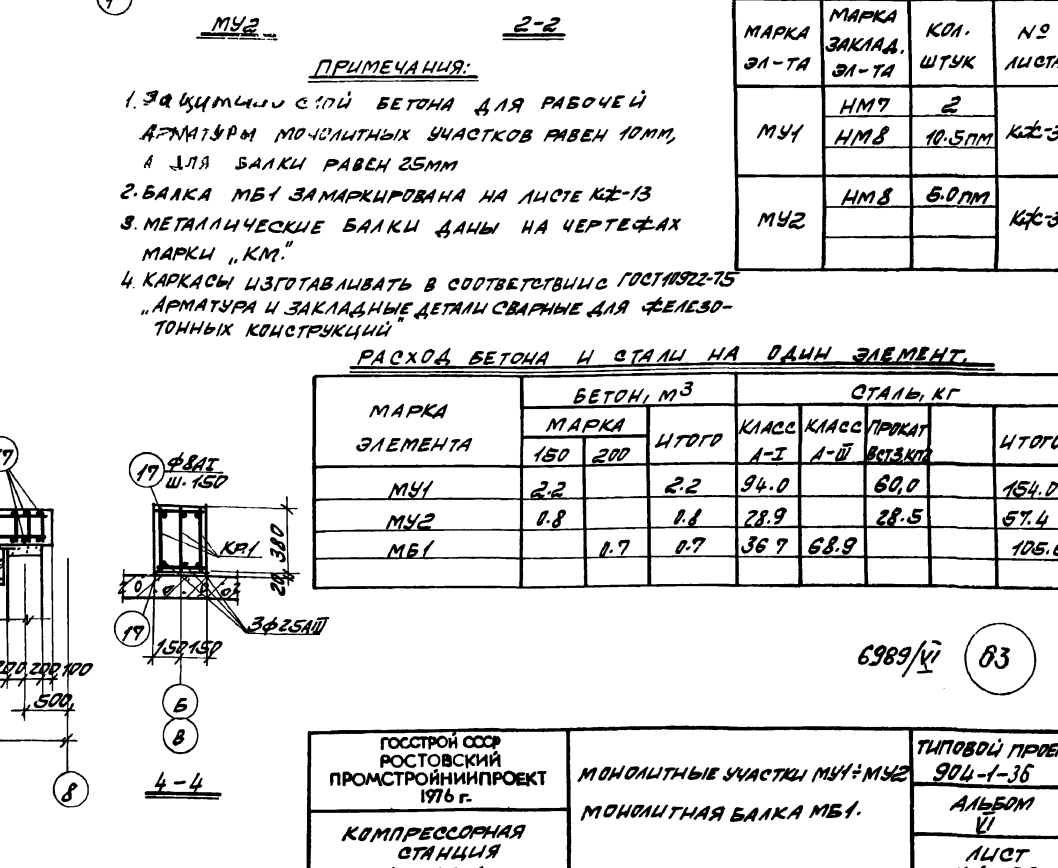 МУ2
2-2
ПРИМЕЧАНИЯ:
1. Защитный слой БЕТОНА ДЛЯ РАБОЧЕЙ
АРМАТУРЫ МОНОЛИТНЫХ УЧАСТКОВ РАВЕН 10мм,
А ДЛЯ БАЛКИ РАВЕН 25мм
2. БАЛКА МБ1 ЗАМАРКИРОВАНА НА ЛИСТЕ КЖ-13
3. МЕТАЛЛИЧЕСКИЕ БАЛКИ ДАНЫ НА ЧЕРТЕЖАХ
МАРКИ „КМ."
4. КАРКАСЫ ИЗГОТАВЛИВАТЬ В СООТВЕТСТВИИ С ГОСТ 10922-75
„АРМАТУРА И ЗАКЛАДНЫЕ ДЕТАЛИ СВАРНЫЕ ДЛЯ ЖЕЛЕЗО-
ТОННЫХ КОНСТРУКЦИЙ"
МАРКА ЭЛ-ТА МАРКА ЗАКЛАД. ЭЛ-ТА КОЛ. ШТУК № ЛИСТА
МУ1 НМ7 2 КЖ-3
НМ8 10.5пм
МУ2 НМ8 6.0пм КЖ-3
РАСХОД БЕТОНА И СТАЛИ НА ОДИН ЭЛЕМЕНТ.
МАРКА ЭЛЕМЕНТА БЕТОН, М³ СТАЛЬ, КГ
МАРКА ИТОГО КЛАСС А-I КЛАСС А-III ПРОКАТ ВСТ3КП2 ИТОГО
150 200
МУ1 2.2 2.2 94.0 60,0 154.0
МУ2 0.8 0.8 28.9 28.5 57.4
МБ1 0.7 0.7 36 7 68.9 105.6
17
17 Ф8АI
Ш. 150
КР1
20, 380
3ф25АIII
17
150 150
Б
В
4-4
200 200 100
500
8
6989/VI 63
ГОССТРОЙ СССР
РОСТОВСКИЙ
ПРОМСТРОЙНИИПРОЕКТ
1976 г.
КОМПРЕССОРНАЯ
СТАНЦИЯ
МОНОЛИТНЫЕ УЧАСТКИ МУ1÷МУ2
МОНОЛИТНАЯ БАЛКА МБ1.
ТИПОВОЙ ПРОЕ
904-1-36
АЛЬБОМ
VI
ЛИСТ